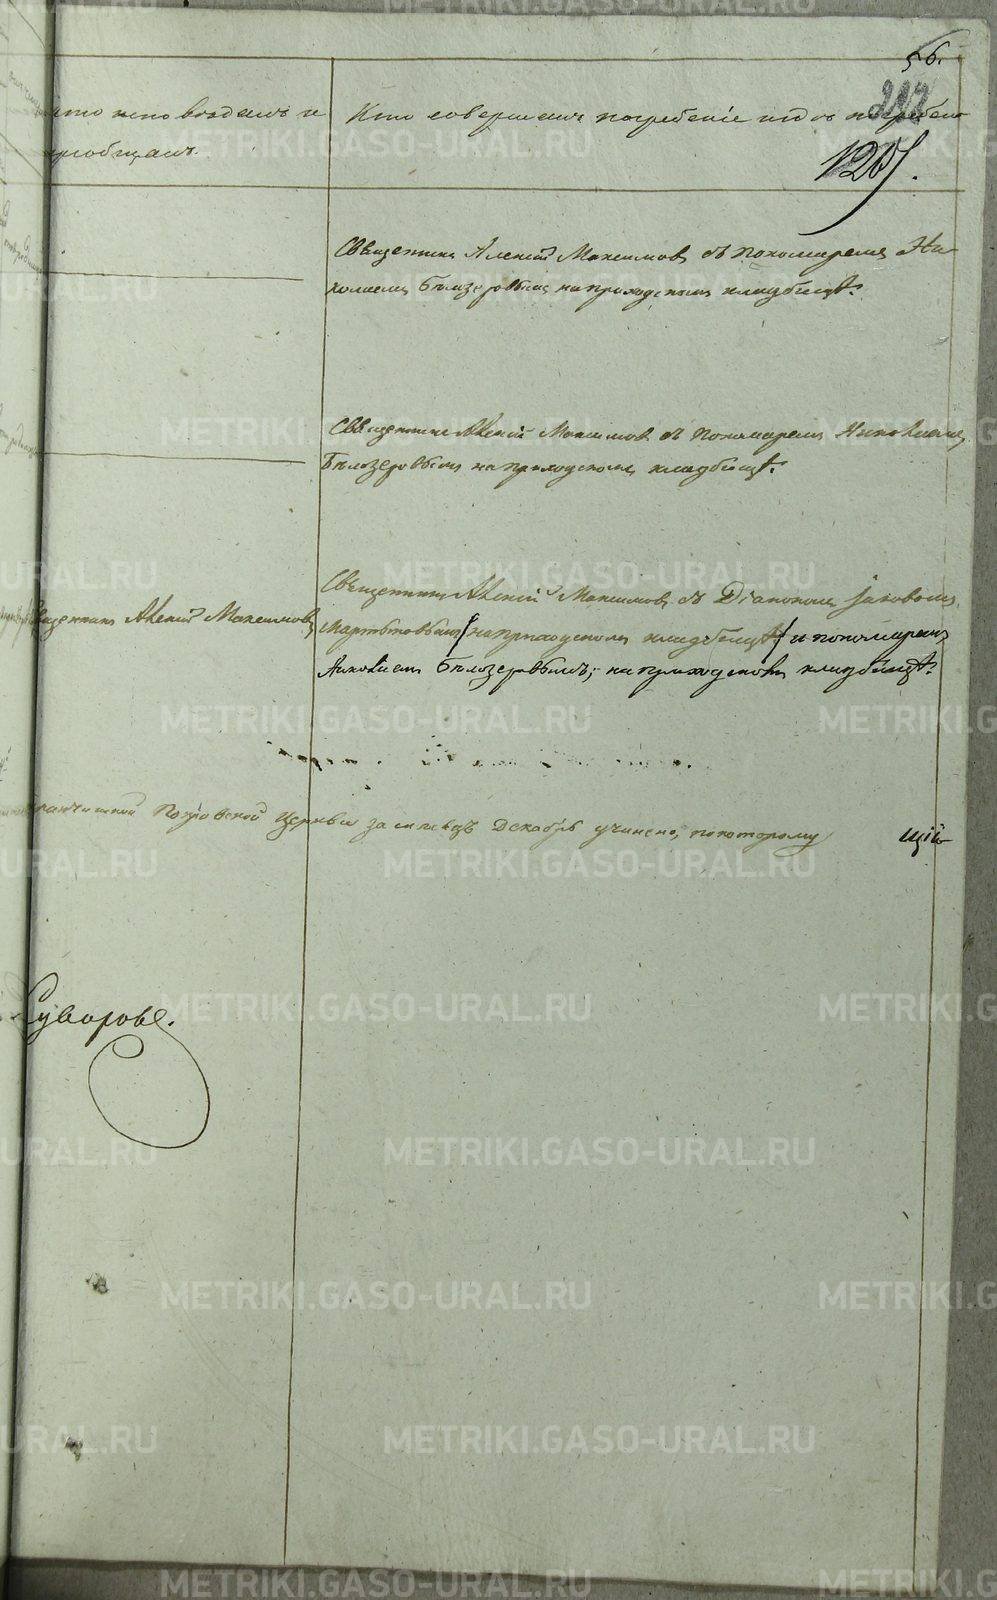 56.
212
1205.
Кто исповѣдалъ и
пріобщалъ.
Кто совершалъ погребеніе и гдѣ погребен
Священникъ Алексій Максимовъ съ пономаремъ Ни-
колаемъ Бѣлозеровымъ на приходскомъ кладбищѣ.
Священникъ Алексій Максимовъ съ пономаремъ Николаемъ
Бѣлозеровымъ на приходскомъ кладбищѣ.
Священникъ Алексій Максимовъ
Священникъ Алексій Максимовъ съ Діакономъ Іаковомъ
на приходскомъ кладбищѣ и пономаремъ
Николаемъ Бѣлозеровымъ, на приходскомъ кладбищѣ.
церкви за мѣсяцъ Декабрь учинено, по которому
щій
Суворовъ.
METRIKI.GASO-URAL.RU